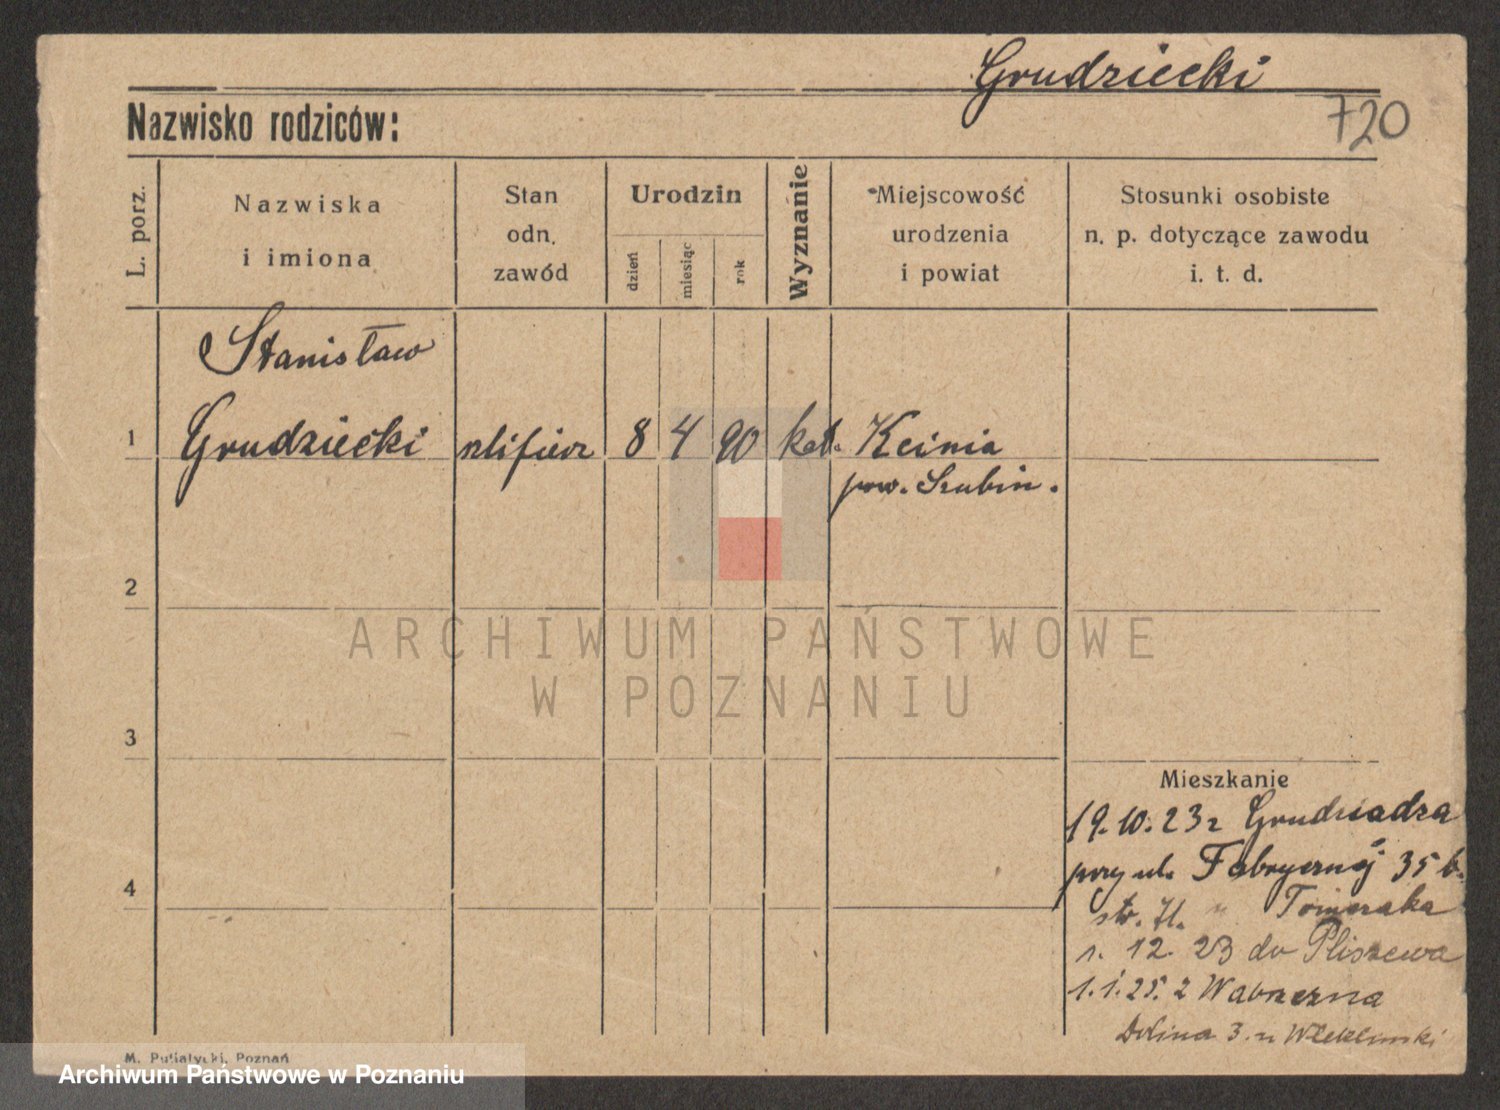 Grudziecki
720
Nazwisko rodziców:
L. porz.
Nazwiska
i imiona
Stan
odn.
zawód
Urodzin
dzień
miesiąc
rok
Wyznanie
Miejscowość
urodzenia
i powiat
Stosunki osobiste
n. p. dotyczące zawodu
i. t. d.
Stanisław
1 Grudziecki szlifierz 8 4 90 kat. Kcinia
pow. Szubin.
2
ARCHIWUM PAŃSTWOWE
W POZNANIU
3
Mieszkanie
19.10.23 z Grudziadza
przy ul. Fabrycznéj 35 b.
4
str. Jl. " Tomczaka
1. 12. 23 do
1.1.25. z Wabrzezna
Dolina 3. u
M. Putiatycki, Poznań
Archiwum Państwowe w Poznaniu